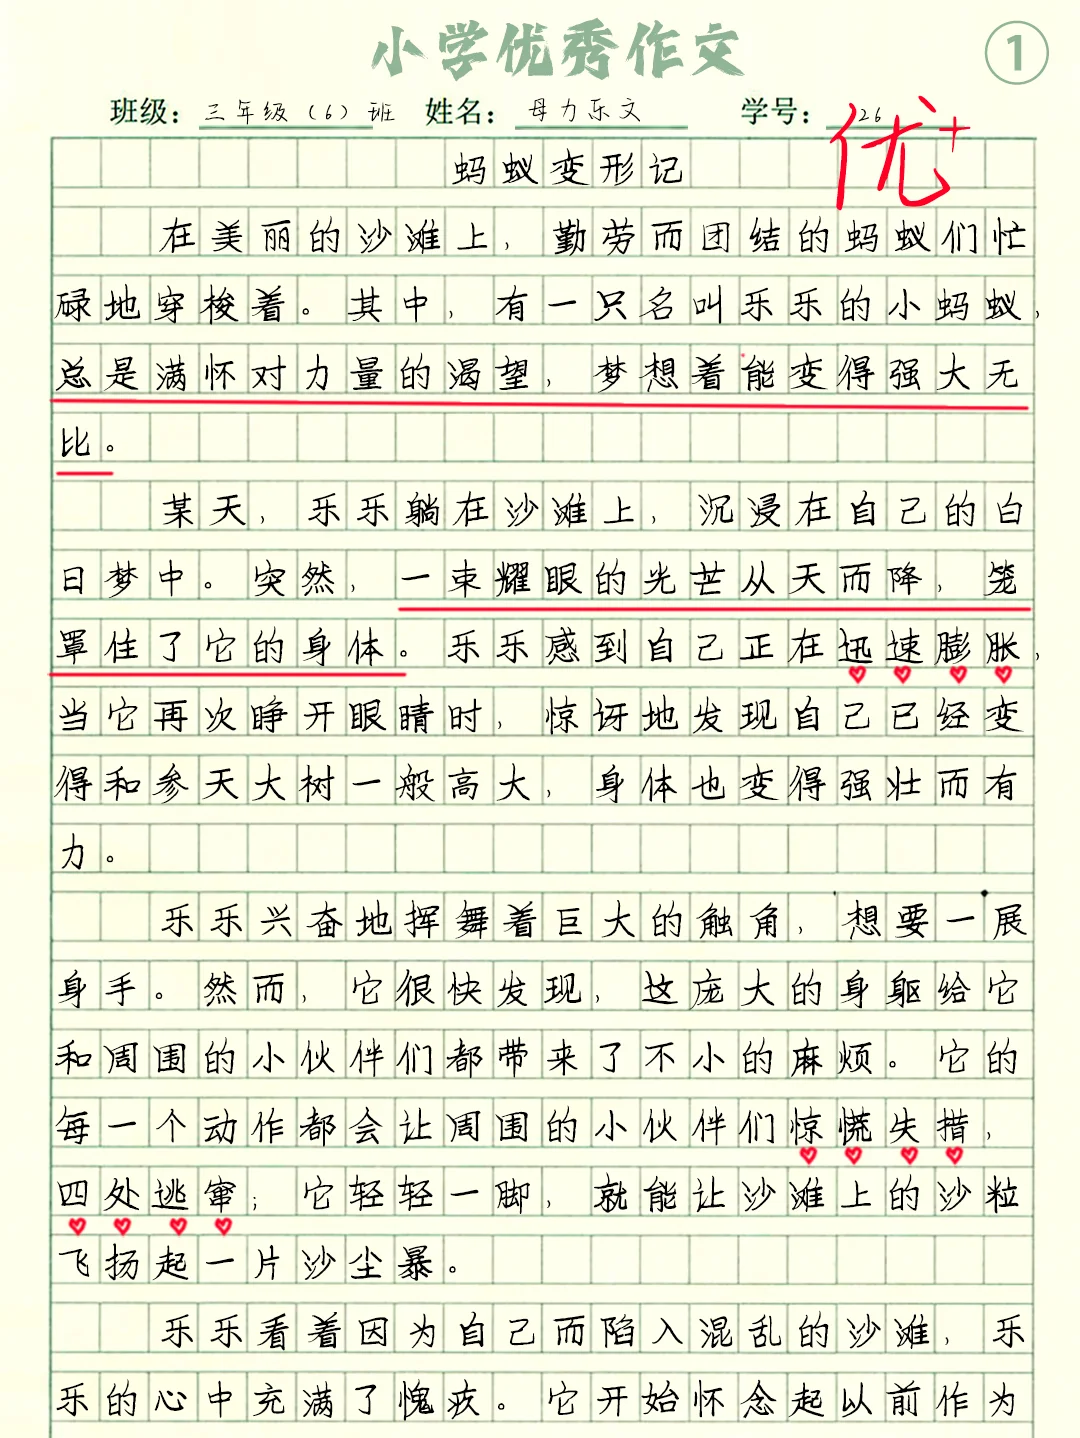 小学优秀作文
1
班级：三年级（6）班 姓名：母力乐文 学号：26
优+
蚂蚁变形记
在美丽的沙滩上，勤劳而团结的蚂蚁们忙
碌地穿梭着。其中，有一只名叫乐乐的小蚂蚁，
总是满怀对力量的渴望，梦想着能变得强大无
比。
某天，乐乐躺在沙滩上，沉浸在自己的白
日梦中。突然，一束耀眼的光芒从天而降，笼
罩住了它的身体。乐乐感到自己正在迅速膨胀，
当它再次睁开眼睛时，惊讶地发现自己已经变
得和参天大树一般高大，身体也变得强壮而有
力。
乐乐兴奋地挥舞着巨大的触角，想要一展
身手。然而，它很快发现，这庞大的身躯给它
和周围的小伙伴们都带来了不小的麻烦。它的
每一个动作都会让周围的小伙伴们惊慌失措，
四处逃窜；它轻轻一脚，就能让沙滩上的沙粒
飞扬起一片沙尘暴。
乐乐看着因为自己而陷入混乱的沙滩，乐
乐的心中充满了愧疚。它开始怀念起以前作为